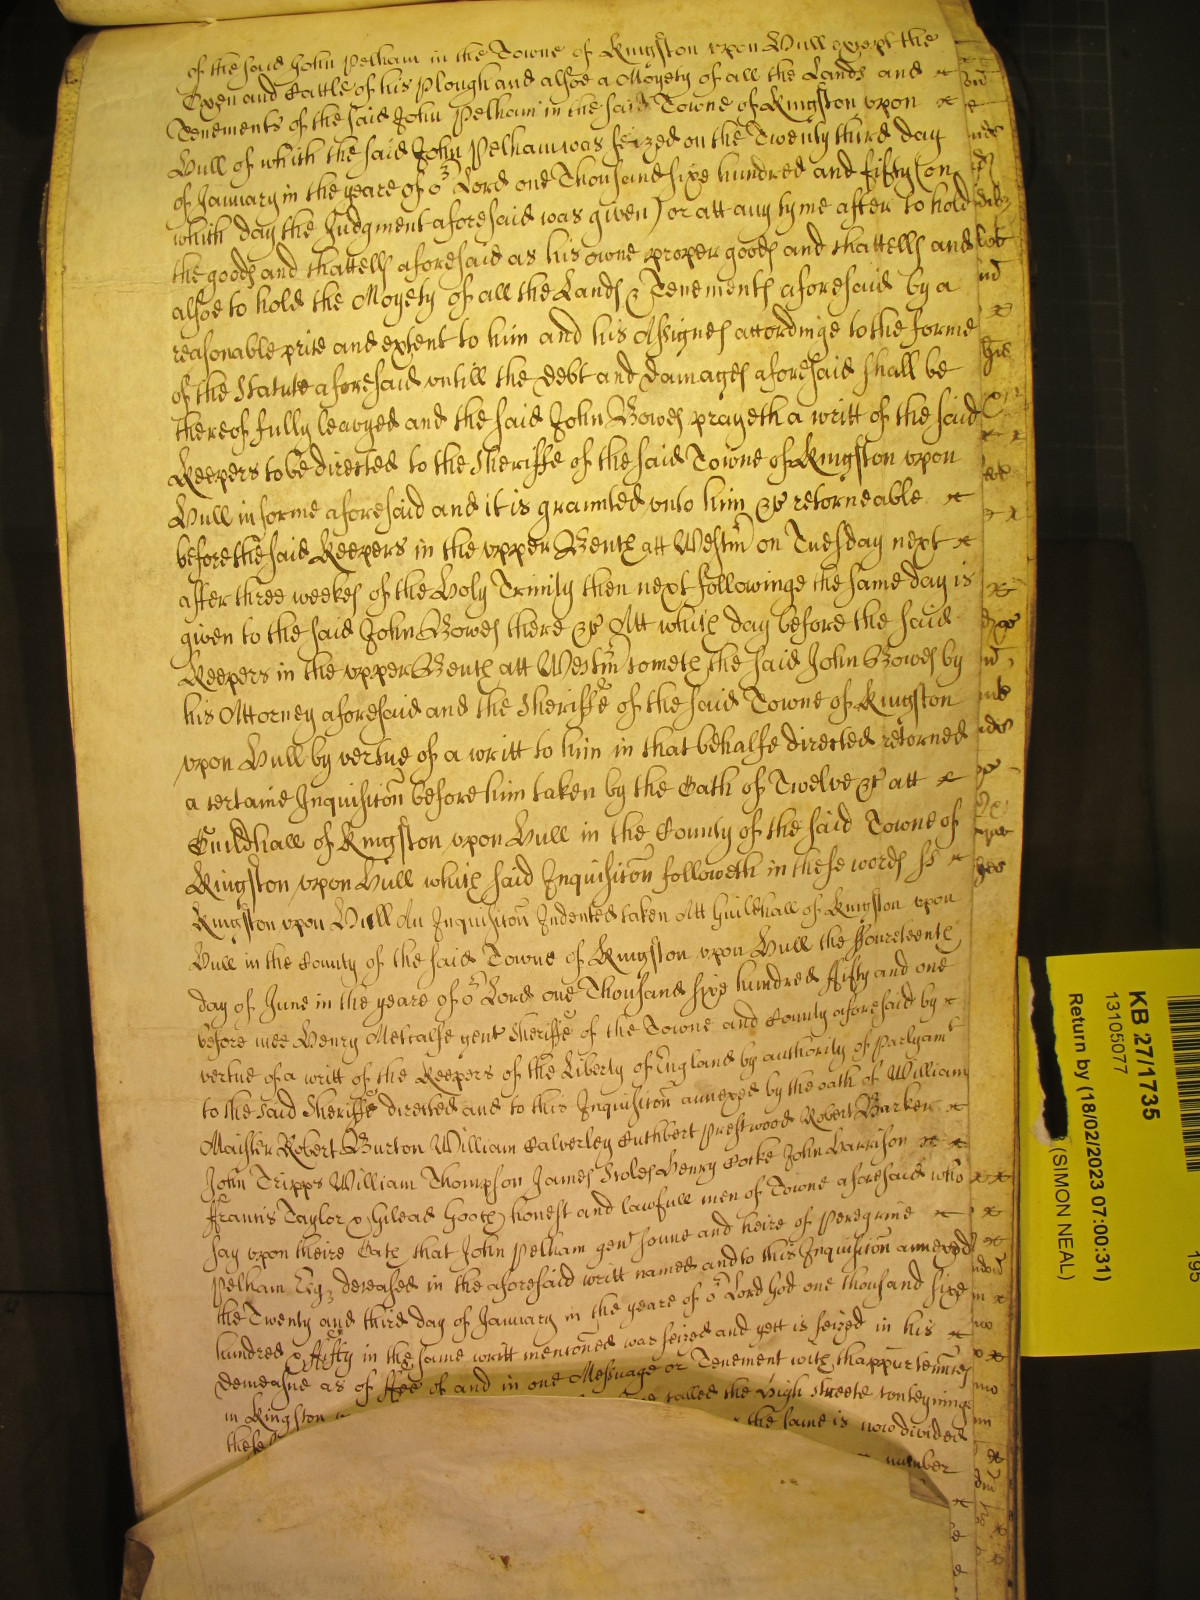 of the said John Pelham in the Towne of Kingston vpon Hull except the
Oxen and Cattle of his Plough and alsoe a Moyety of all the Lands and
Tenements of the said John Pelham in the said Towne of Kingston vpon
Hull of which the said John Pelham was seized on the Twenty third day
of January in the yeare of or Lord one Thousand sixe hundred and fifty (on
which day the Judgment aforesaid was given) or att any tyme after to hold
the goods and chattells aforesaid as his owne proper goods and chattells and
alsoe to hold the Moyety of all the Lands & Tenements aforesaid by a
reasonable price and extent to him and his Assignes accordinge to the forme
of the Statute aforesaid vntill the debt and damages aforesaid shall be
thereof fully leavyed and the said John Bowes prayeth a writt of the said
Keepers to be directed to the Sheriffe of the said Towne of Kingston vpon
Hull in forme aforesaid and it is graunted vnto him &c retorneable
before the said Keepers in the vpper Bench att Westm on Tuesday next
after three weekes of the Holy Trinity then next followinge the same day is
given to the said John Bowes there &c Att which day before the said
Keepers in the vpper Bench att Westm cometh the said John Bowes by
his Attorney aforesaid and the Sheriffe of the said Towne of Kingston
vpon Hull by vertue of a writt to him in that behalfe directed retorned
a certaine Inquisicon before him taken by the Oath of Twelve &c att
Guildhall of Kingston vpon Hull in the County of the said Towne of
Kingston vpon Hull which said Inquisicon followeth in these words ss
Kingston vpon Hull An Inquisicon Indented taken Att Guildhall of Kingston vpon
Hull in the County of the said Towne of Kingston vpon Hull the ffoureteenth
day of June in the yeare of or Lord one Thousand sixe hundred ffifty and one
before mee Henry Metcalfe gent Sheriffe of the Towne and County aforesaid by
vertue of a writt of the Keepers of the Liberty of England by authority of Parlyamt
to the said Sheriffe directed and to this Inquisicon annexed by the oath of William
Maister Robert Burton William Calverley Cuthbert Prestwood Robert Barker
John Tripps William Thompson James Stoles Henry Cocke John Harrison
ffrancis Taylor & Gilead Gooch honest and lawfull men of Towne aforesaid who
say vpon theire Oath that John Pelham gent sonne and heire of Peregrine
Pelham Esqr deceased in the aforesaid writt named and to this Inquisicon annexed
the Twenty and third day of January in the yeare of or Lord God one thousand sixe
hundred & ffifty in the same writt menconed was seized and yett is seized in his
demeasne as of ffee of and in one Messuage or Tenement with thappurtennces
in Kingston called the High streete conteyninge
these the same is now divided
number
KB 27/1735
13105077
Return by (18/02/2023 07:00:31)
(SIMON NEAL)
195